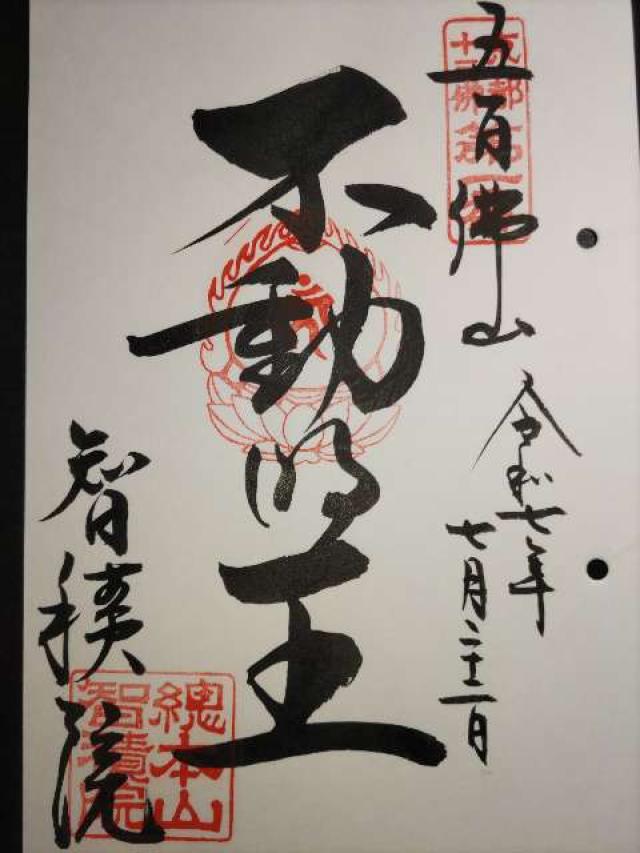 京都
十三佛
第一番
五百佛山
令和七年
七月二十二日
不動明王
智積院
總本山
智積院